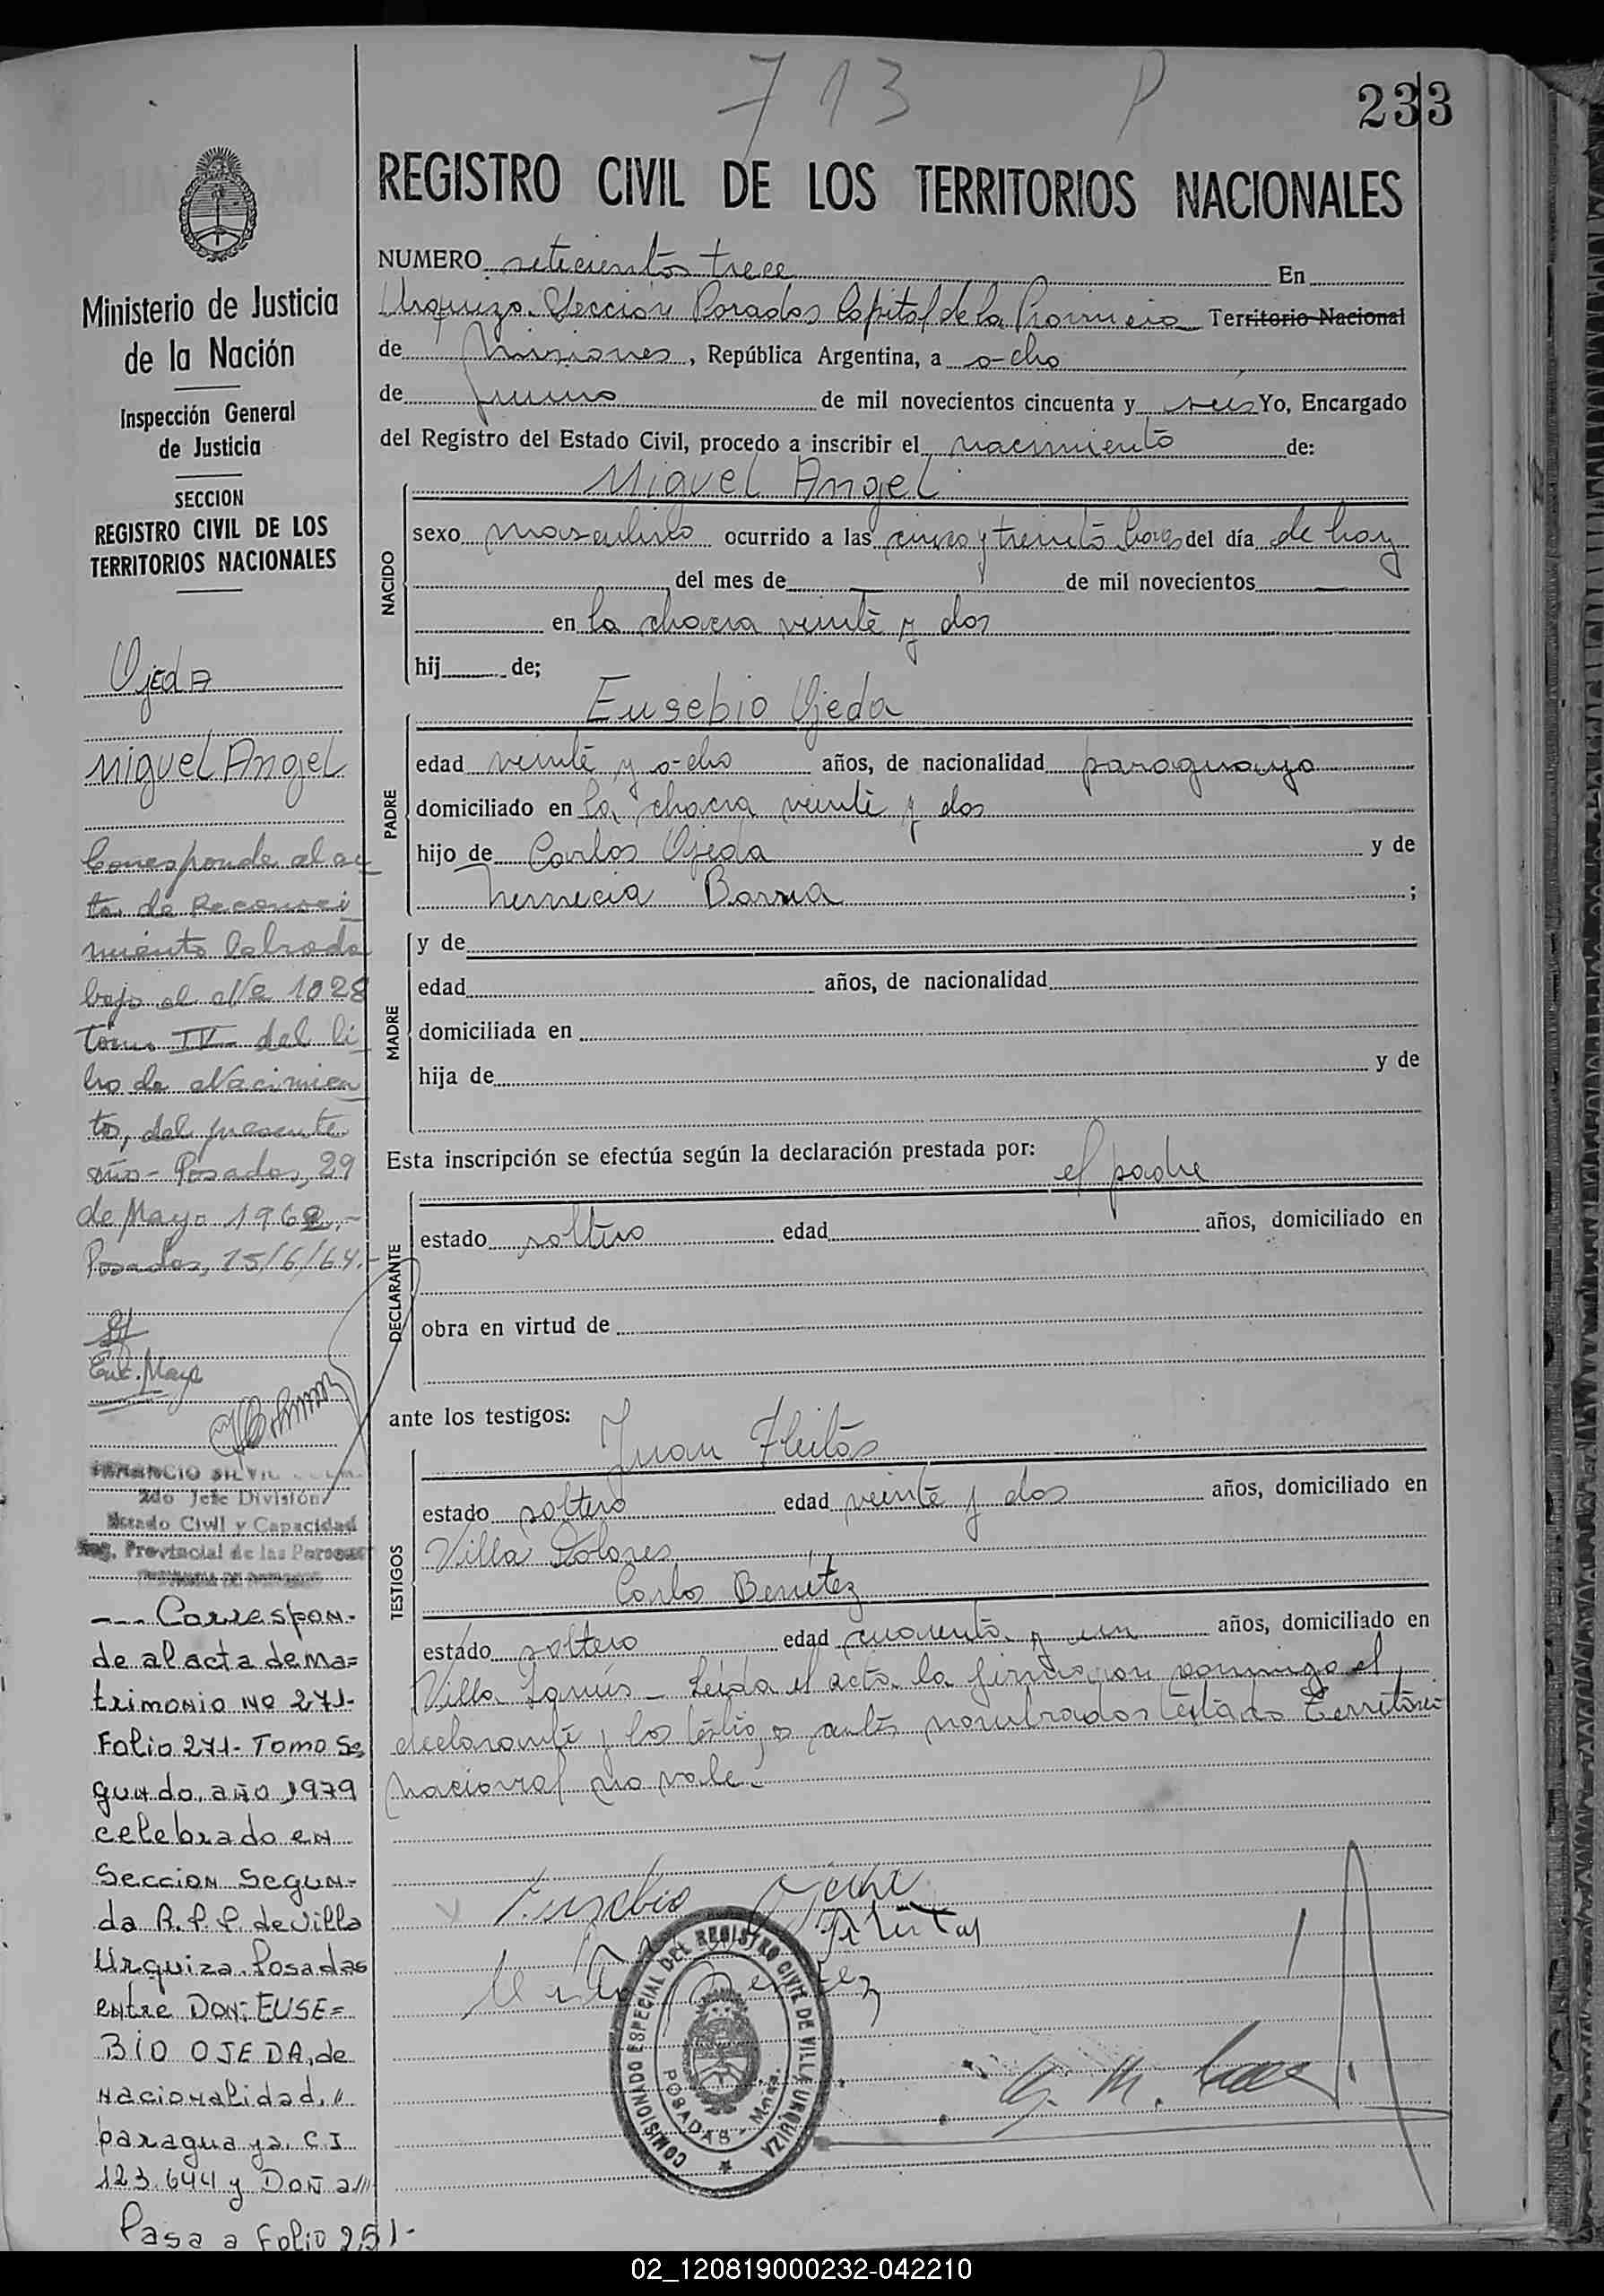 713 P
233
REGISTRO CIVIL DE LOS TERRITORIOS NACIONALES
NUMERO seticientos trece En
Urquiza Sección Posadas Capital de la Provincia Territorio Nacional
de Misiones, República Argentina, a ocho
de junio de mil novecientos cincuenta y seis Yo, Encargado
del Registro del Estado Civil, procedo a inscribir el nacimiento de:
NACIDO
Miguel Angel
sexo masculino ocurrido a las cinco y treinta horas del día de hoy
del mes de de mil novecientos
en la chacra veinte y dos
hij de;
PADRE
Eusebio Ojeda
edad veinte y ocho años, de nacionalidad paraguaya
domiciliado en la chacra veinte y dos
hijo de Carlos Ojeda y de
;
MADRE
y de
edad años, de nacionalidad
domiciliada en
hija de y de
Esta inscripción se efectúa según la declaración prestada por:
el padre
DECLARANTE
estado soltero edad años, domiciliado en
obra en virtud de
ante los testigos:
TESTIGOS
Juan Fleitas
estado soltero edad veinte y dos años, domiciliado en
Villa Dolores
Carlos Benítez
estado soltero edad cuarenta y un años, domiciliado en
Villa Lanús - Leída el acta la firma con el
declarante y los testigos antes nombrados testado Territorio
nacional no vale.-
Eusebio Ojeda
Fleitas
Benitez
COMISIONADO ESPECIAL DEL REGISTRO CIVIL DE VILLA URQUIZA
POSADAS - Mnes.
Ministerio de Justicia
de la Nación
Inspección General
de Justicia
SECCION
REGISTRO CIVIL DE LOS
TERRITORIOS NACIONALES
Ojeda
Miguel Angel
Corresponde al ac-
ta de Reconoci-
miento labrada
bajo el Nº 1028
Tomo IV- del li-
bro de Nacimien-
to, del presente
año - Posadas, 29
de Mayo 1962.-
Posadas, 15/6/64.-
2do Jefe División
Estado Civil y Capacidad
Reg. Provincial de las Personas
--- Correspon-
de al acta de ma=
trimonio No 271-
Folio 271- Tomo Se
gundo, año 1979
celebrado en
Seccion Segun-
da R.P.P. de Villa
Urquiza. Posadas
entre DON: EUSE=
BIO OJEDA, de
nacionalidad, "
paraguaya. C.I
123.644 y Doña ///
Pasa a Folio 251-
02_120819000232-042210